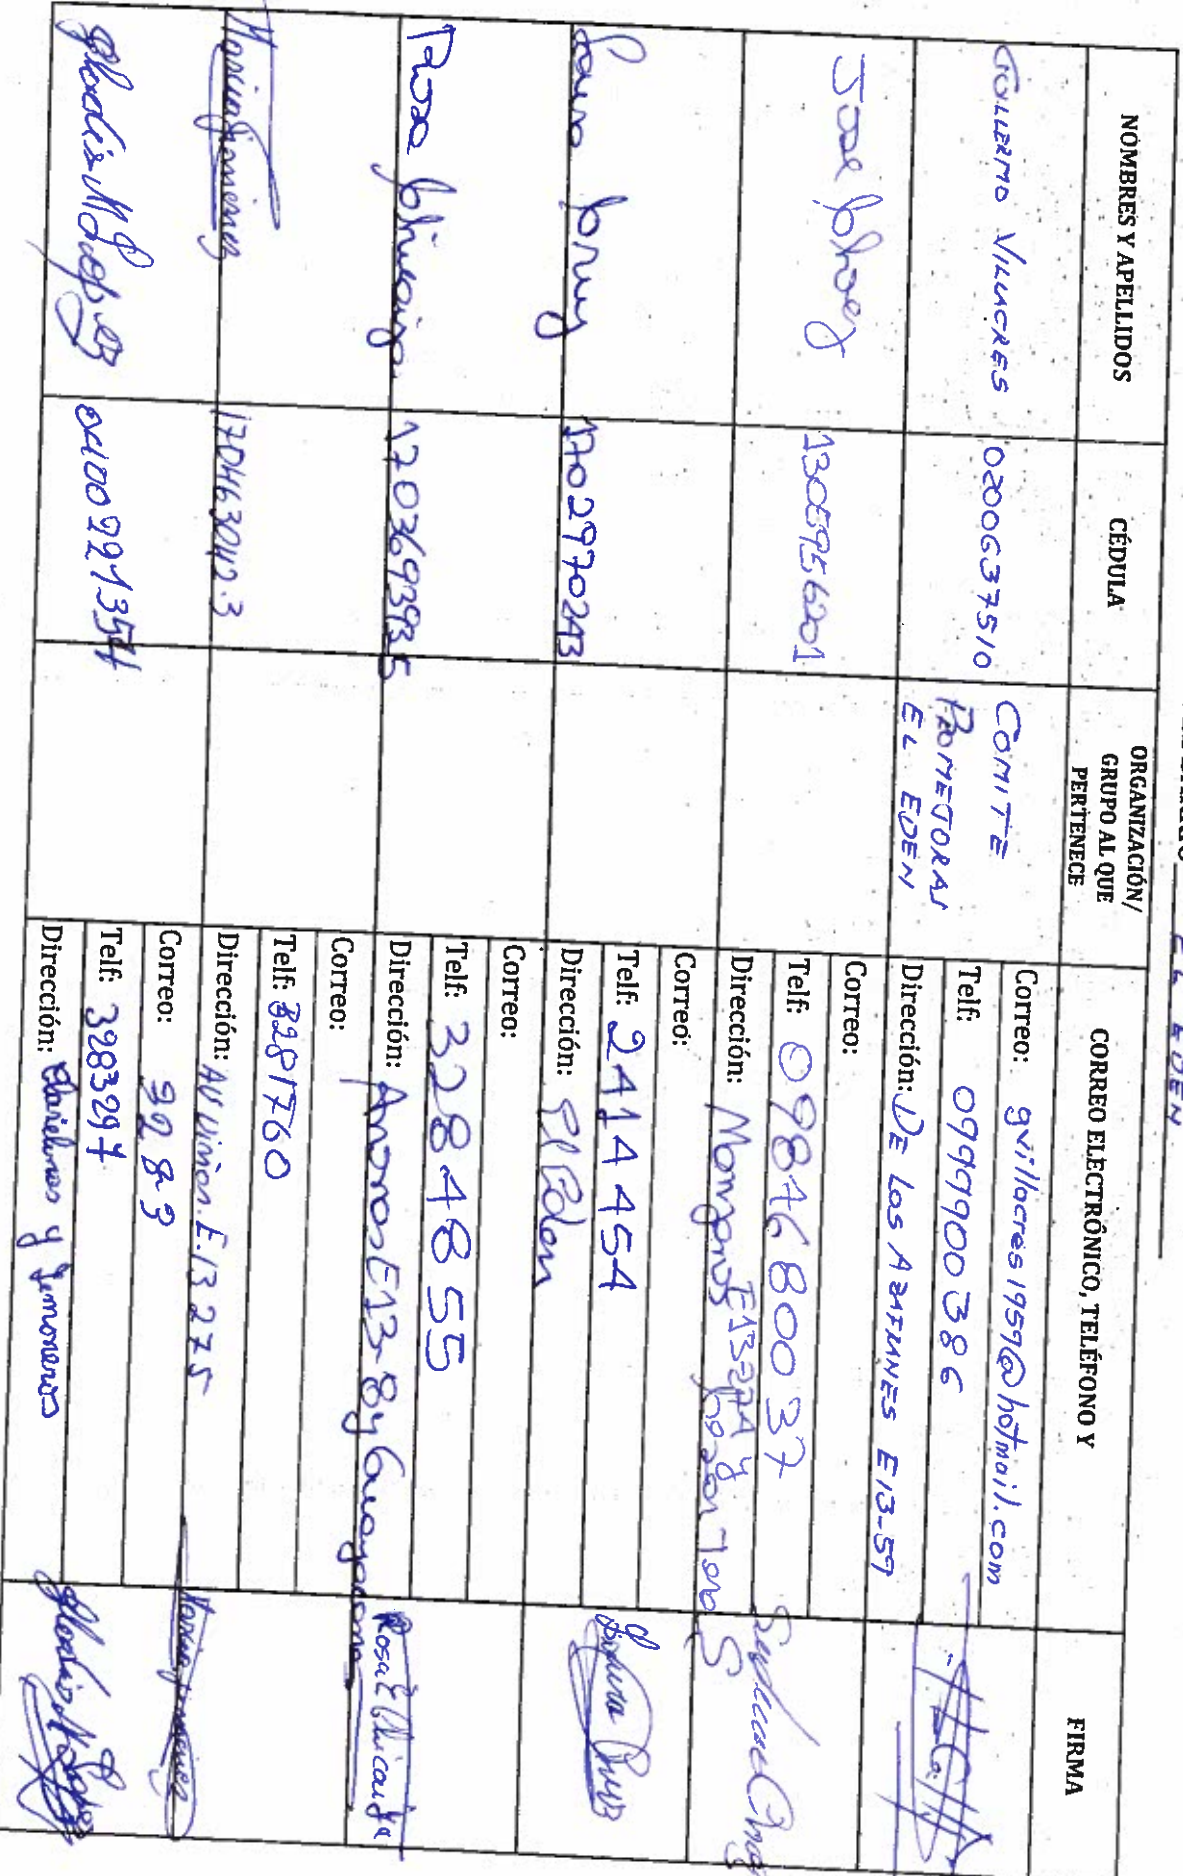 EL EDEN
NOMBRES Y APELLIDOS
CÉDULA
ORGANIZACIÓN/
GRUPO AL QUE
PERTENECE
CORREO ELECTRÓNICO, TELÉFONO Y
FIRMA
GUILLERMO VILLACRES
0200637510
COMITE
PROMEJORAS
EL EDEN
Correo: gvillacres1959@hotmail.com
Telf: 0999900386
Dirección: DE LOS AZAFRANES E13-59
Jose
1305956201
Correo:
Telf: 0984680037
Dirección: Manzanos E13-27A y
1702970243
Correo:
Telf: 2414454
Dirección: El Eden
Rosa
1703693935
Correo:
Telf: 3284855
Dirección: E13-8y
Rosa E Chicaiza
Maria Jimenez
170463042.3
Correo:
Telf: 3281760
Dirección: AV E13 275
Maria Jimenez
0400991354
Correo: 9283
Telf: 3283297
Dirección: y limoneros